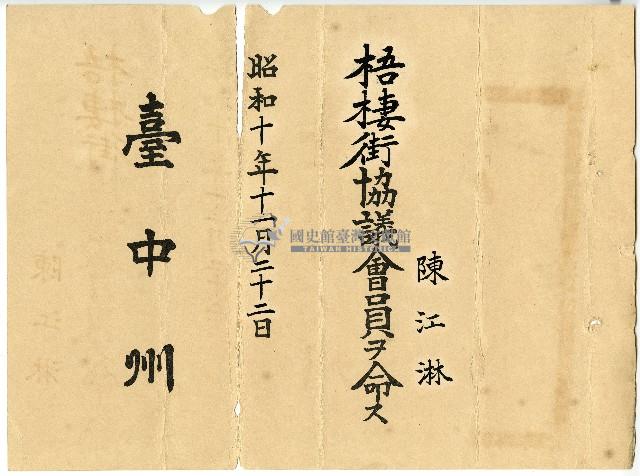 陳江淋
梧棲街協議會員ヲ命ス
昭和十年十一月二十二日
臺中州
國史館臺灣文獻館
TAIWAN HISTORICA